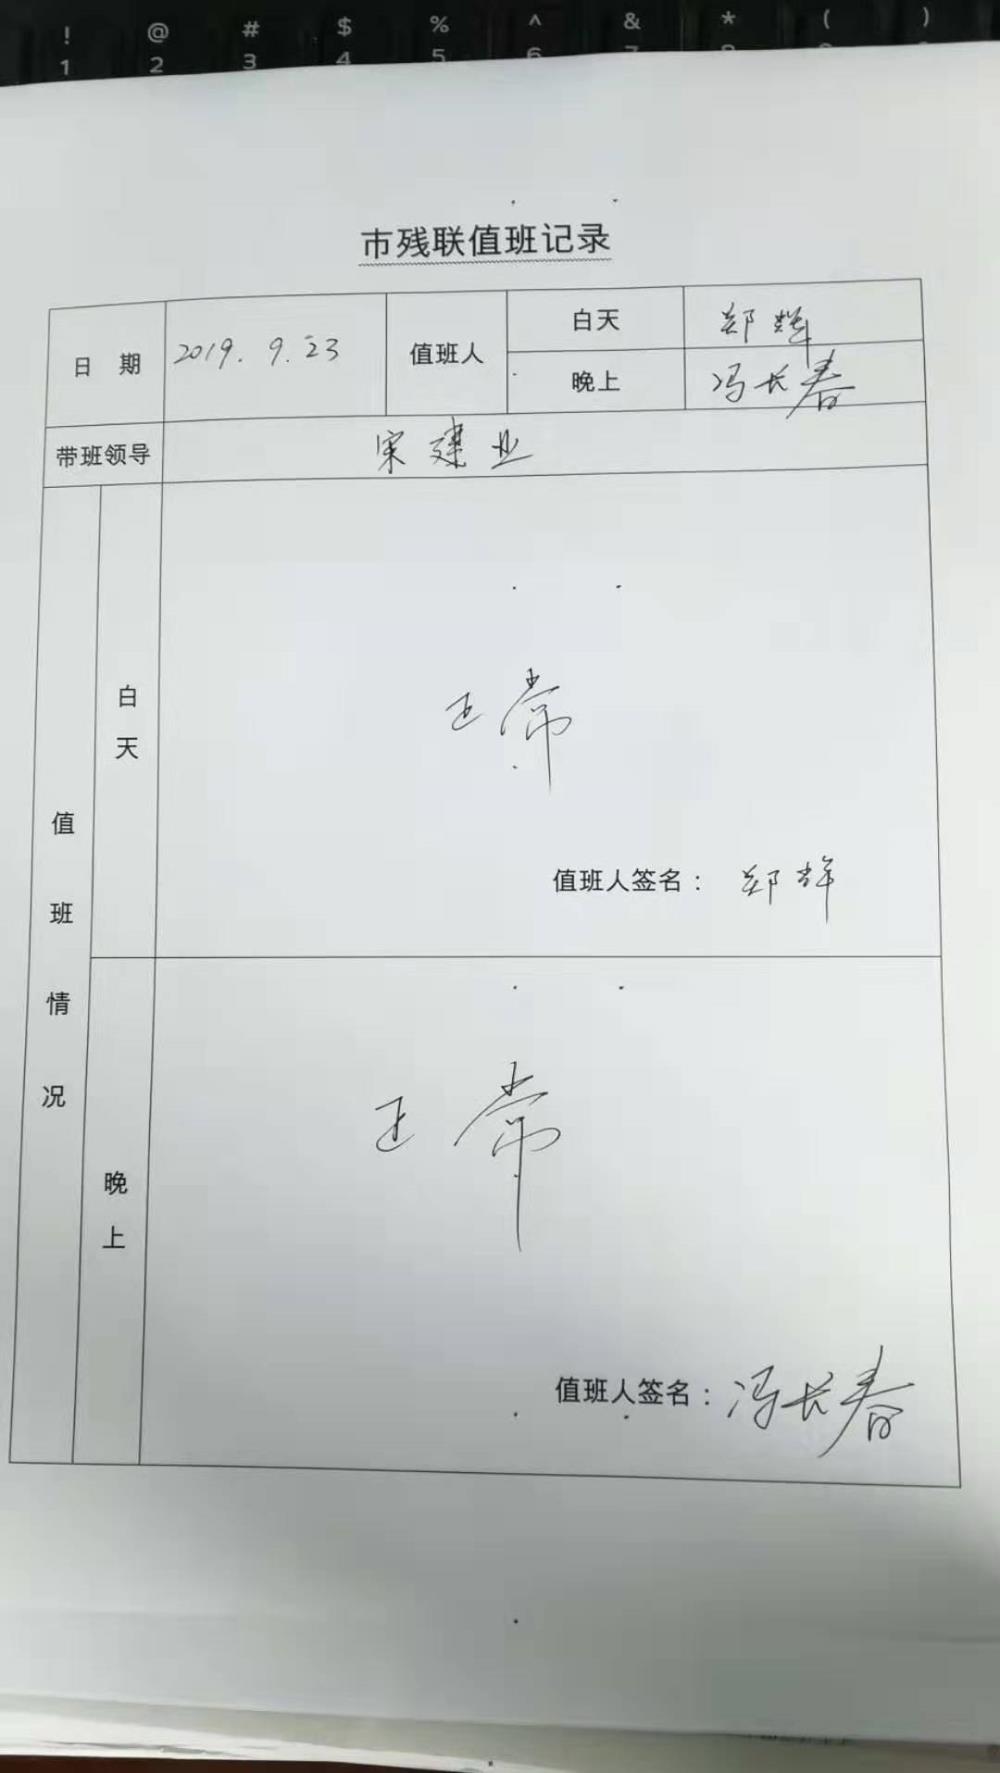 ! @ # $ % ^ & * ( )
1 2 3 4 5 6 7
市残联值班记录
日 期 2019. 9. 23 值班人 白天 郑辉
晚上 冯长春
带班领导 宋建业
值班情况
白天
正常
值班人签名： 郑辉
晚上
正常
值班人签名： 冯长春